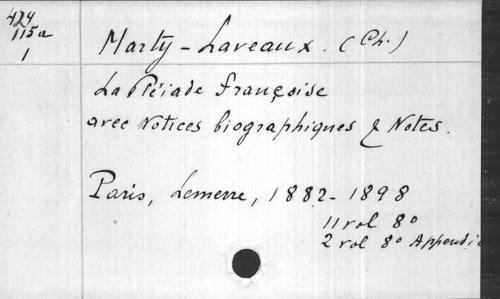 424
115a
1
Marty-Laveaux. (Ch.)
La Pléiade françoise
avec Notices biographiques & Notes.
Paris, Lemerre, 1882-1898
11 vol 8°
2 vol 8° Appendi